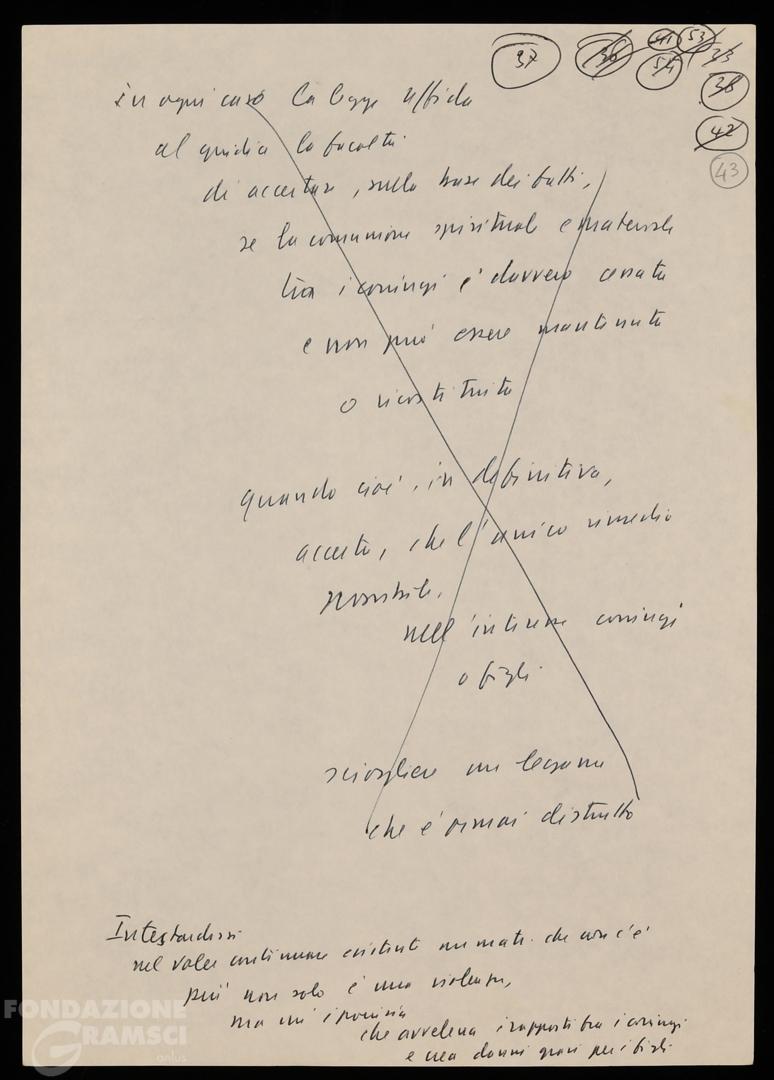 37 36 41 53 33
54 38
42
43
in ogni caso la legge affida
al giudice la facoltà
di accertare, sulla base dei fatti,
se la comunione spirituale e materiale
tra i coniugi è davvero cessata
e non può essere mantenuta
o ricostituita
quando cioè, in definitiva,
accerta, che l'unico rimedio
possibile,
nell'interesse coniugi
o figli
sciogliere un legame
che è ormai distrutto
Intestardirsi
nel voler continuare esistente un matr. che non c'è
più non solo è una violenza,
ma un'ipocrisia
che avvelena i rapporti tra i coniugi
e crea danni gravi per i figli
FONDAZIONE
GRAMSCI
onlus